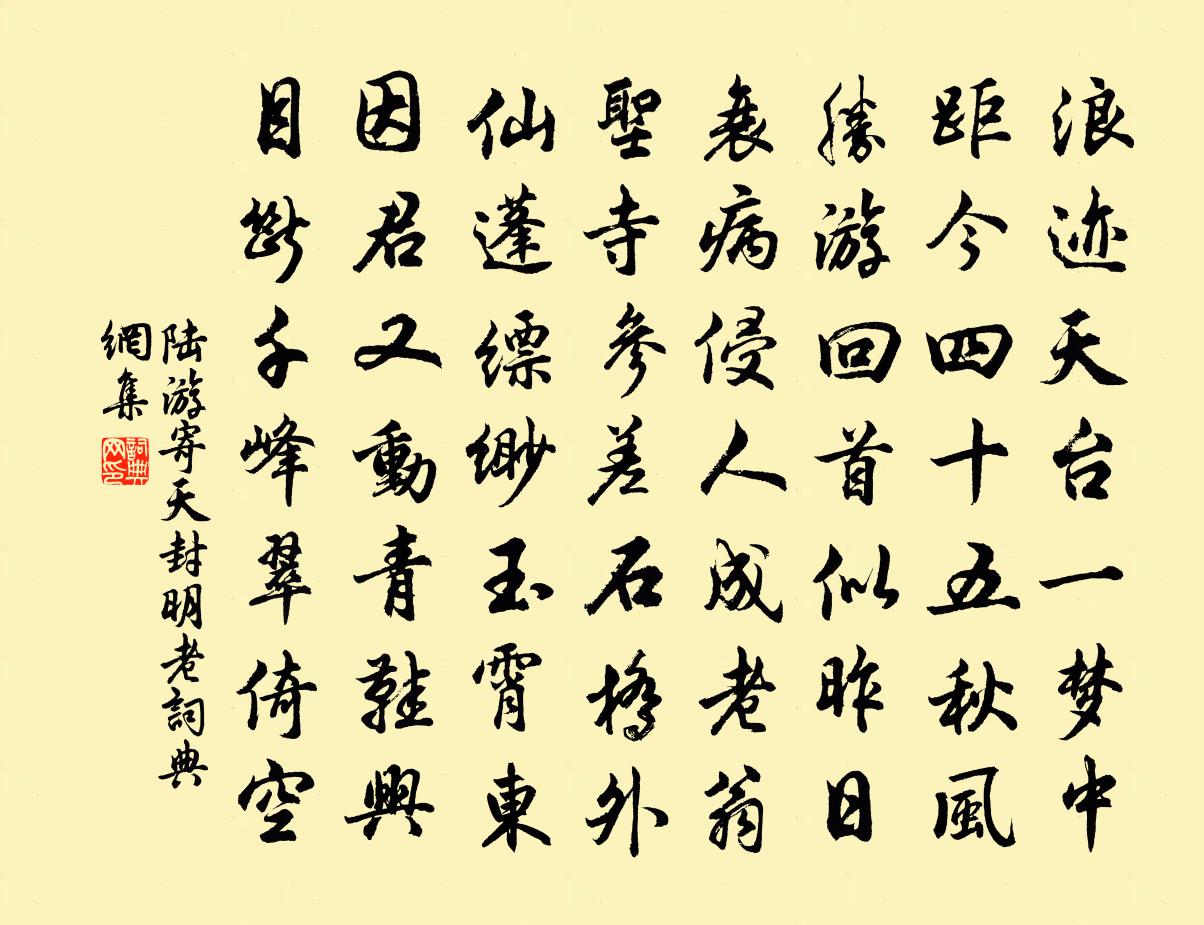 浪迹天台一梦中
距今四十五秋風
勝游回首似昨日
衰病侵人成老翁
聖寺參差石橋外
仙蓬縹緲玉霄東
因君又動青鞋興
目斷千峰翠倚空
陆游寄天封明老詞典
網集
詞典
网印